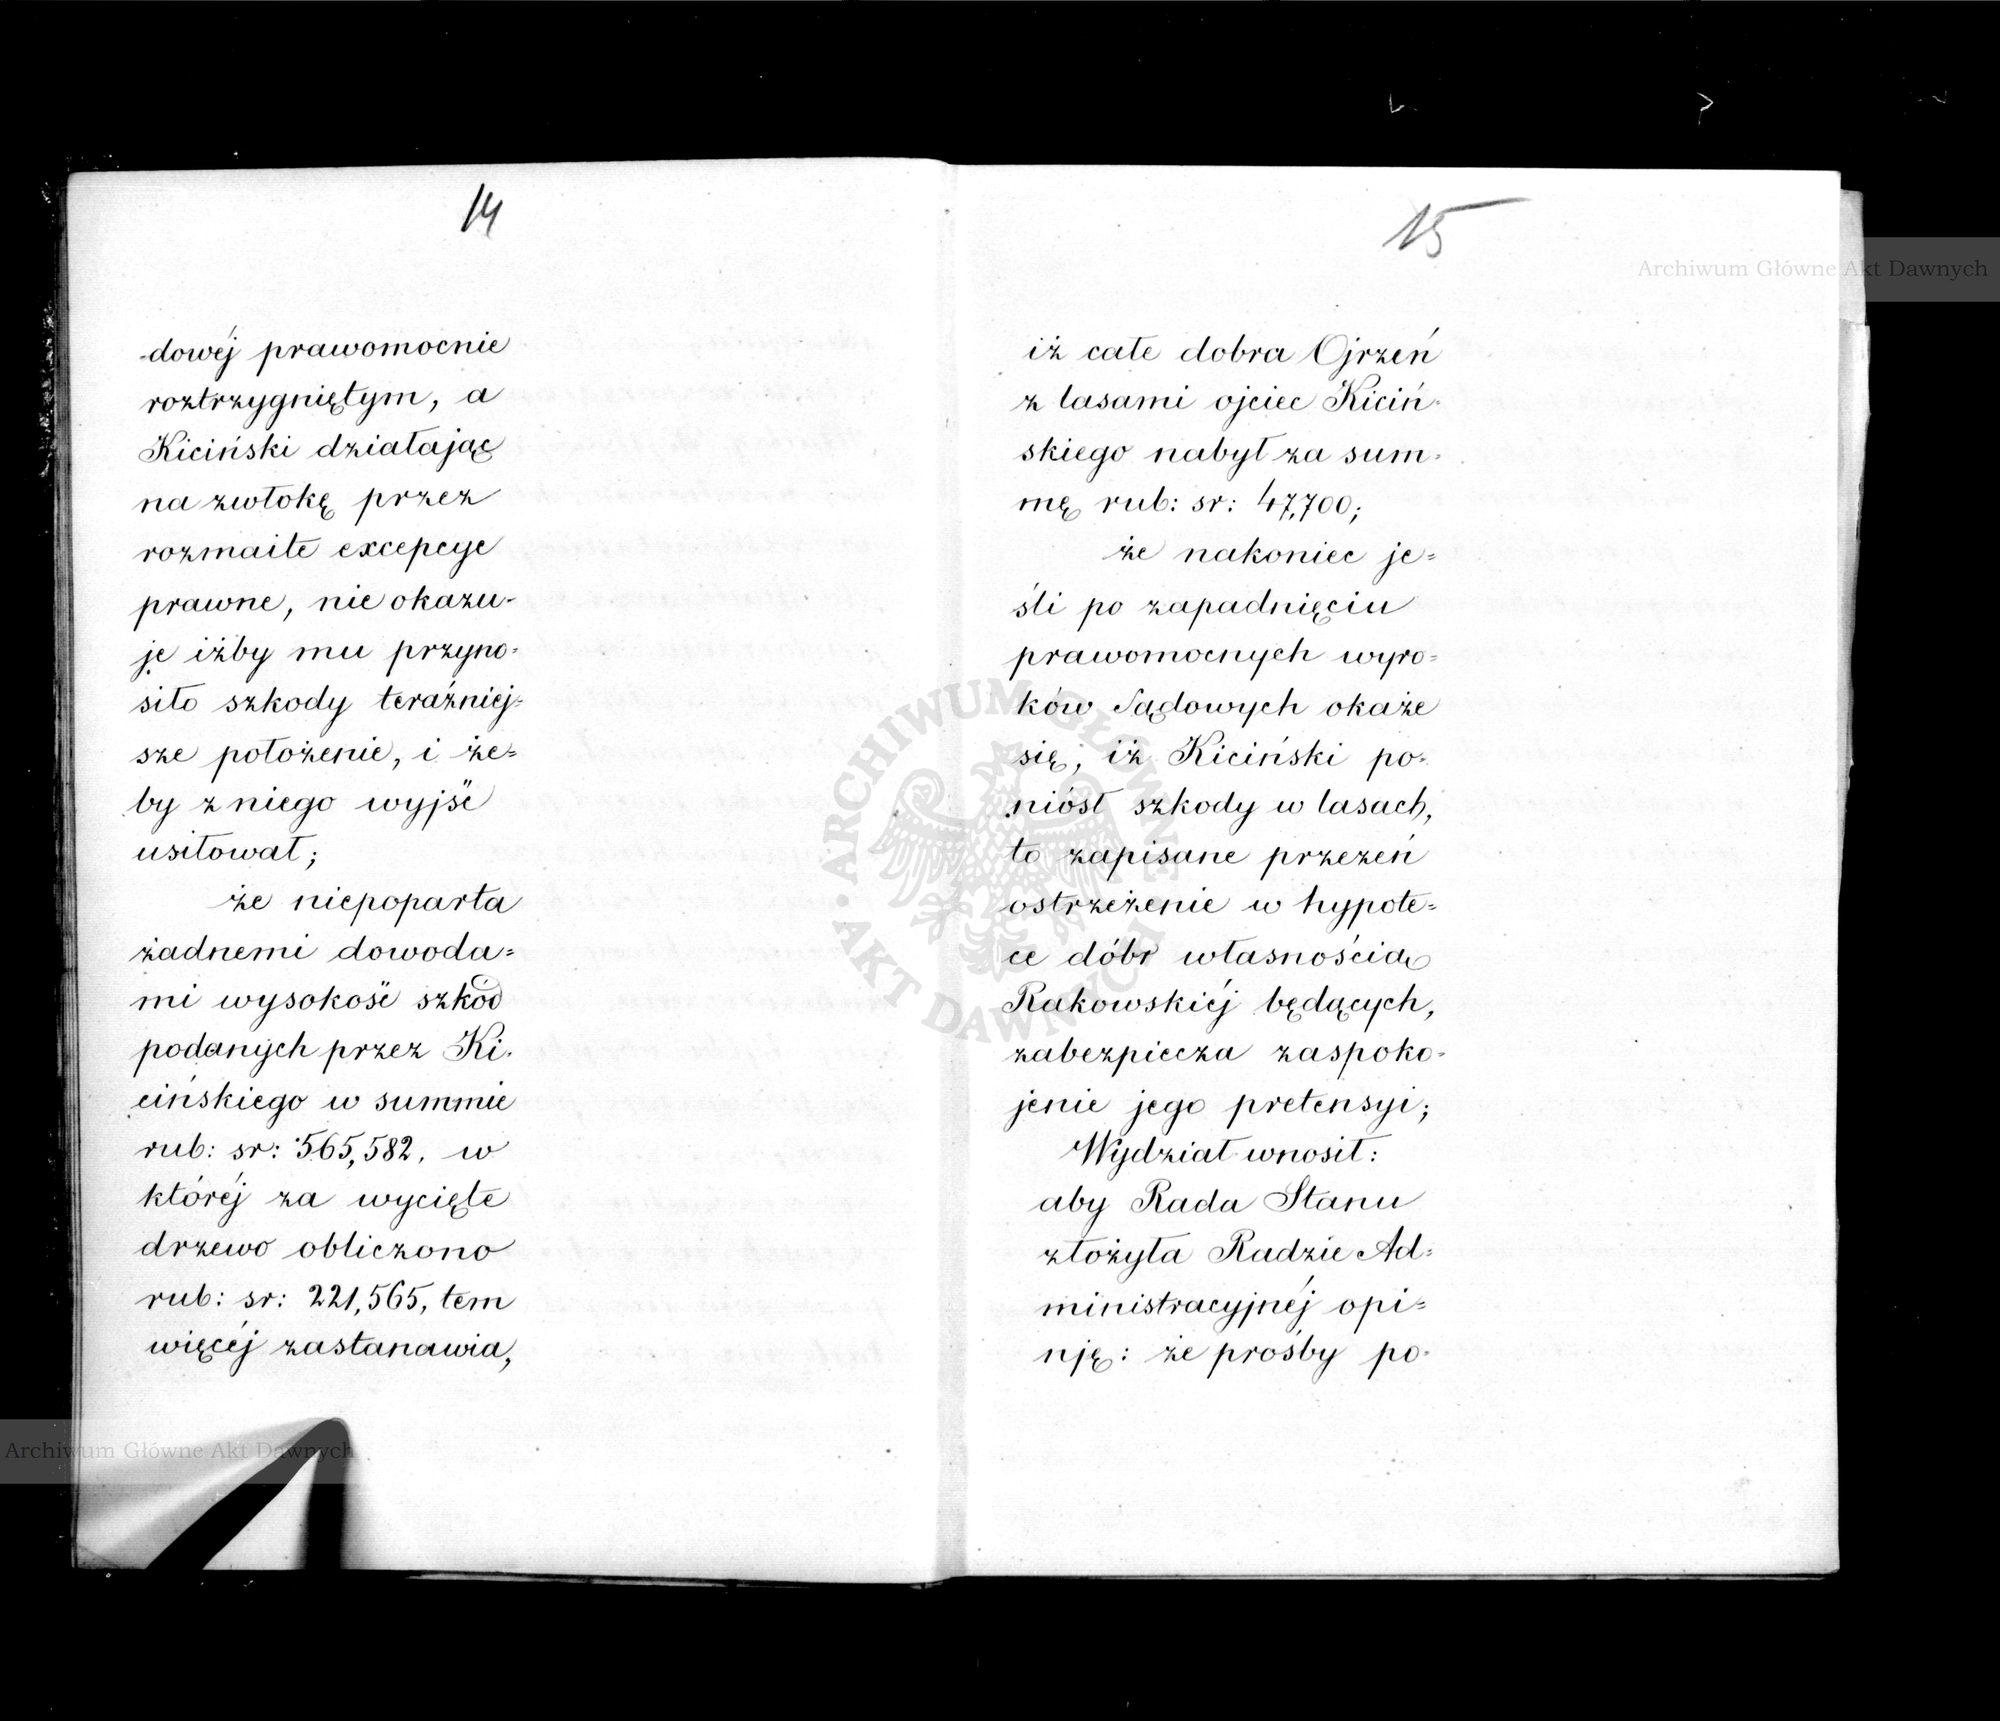 14
-dowéj prawomocnie
roztrzygniętym, a
Kiciński działając
na zwłokę przez
rozmaite excepcye
prawne, nie okazu-
je iżby mu przyno-
siło szkody teraźniej-
sze położenie, i że-
by z niego wyjść
usiłował;
że niepoparta
żadnemi dowoda-
mi wysokość szkód
podanych przez Ki-
cińskiego w summie
rub: sr: 565,582. w
któréj za wycięte
drzewo obliczono
rub: sr: 221,565, tem
więcéj zastanawia,
15
iż całe dobra Ojrzeń
z lasami ojciec Kiciń-
skiego nabył za sum-
mę rub: sr: 47,700;
że nakoniec je-
śli po zapadnięciu
prawomocnych wyro-
ków Sądowych okaże
się, iż Kiciński po-
niósł szkody w lasach,
to zapisane przezeń
ostrzeżenie w hypote-
ce dóbr własnością
Rakowskiéj będących,
zabezpiecza zaspoko-
jenie jego pretensyi;
Wydział wnosił:
aby Rada Stanu
złożyła Radzie Ad-
ministracyjnéj opi-
nję: że prośby po-
Archiwum Główne Akt Dawnych
ARCHIWUM GŁÓWNE • AKT DAWNYCH •
Archiwum Główne Akt Dawnych